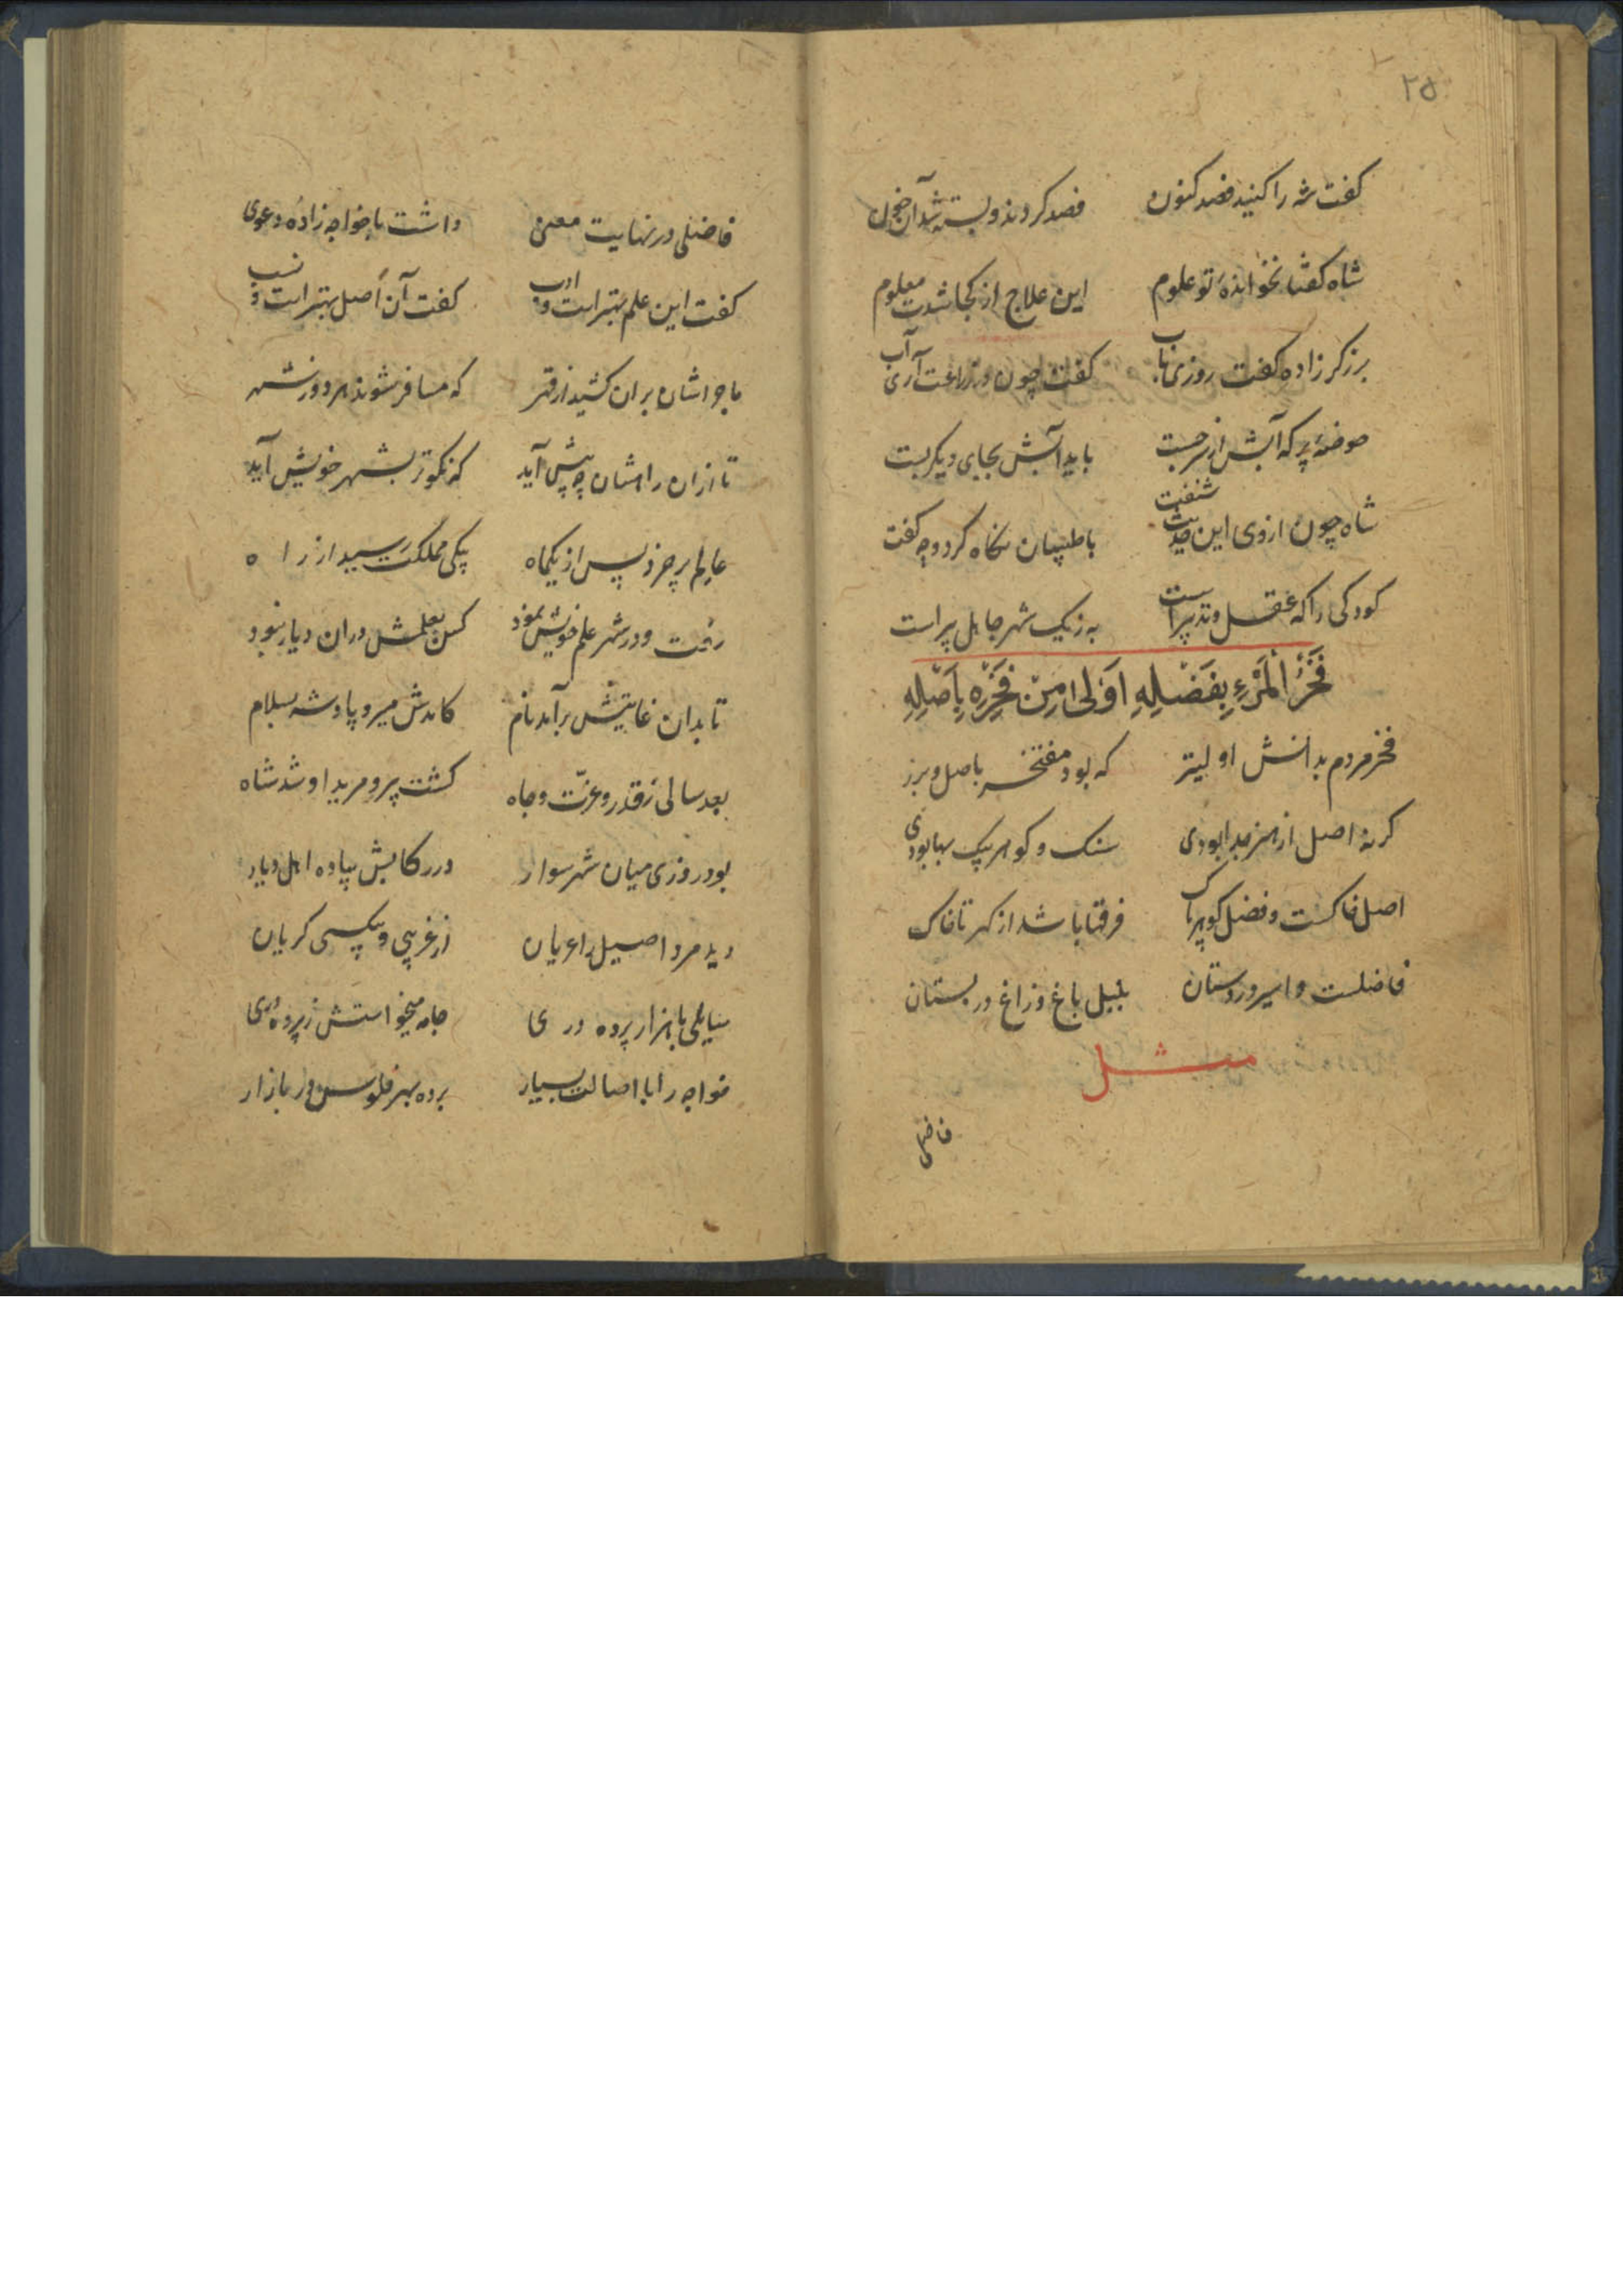 ۲۵
کفت شه را کنید فصد کنون فصد کردند و بسته شد آن خون
شاه کفتا نخوانده تو علوم این علاج از کجا شدت معلوم
برزکر زاده کفت روزی ناب کفت چون در زراعت آری آب
حوضهٔ پر که آبش از سر جست باید آبش بجای دیکر بست
شاه چون از وی این حدیث شنفت با طبیبان نکاه کرد و چه کفت
کودکی را که عقل و تدبیر است به ز یک شهر جاهل پیر است
فَخْرُ الْمَرْءِ بِفَضْلِهِ اَوْلی مِنْ فَخْرِهِ بِاَصْلِهِ
فخر مردم بدانش اولیتر که بود مفتخر باصل و
کر نه اصل از هنر جدا بودی سنک و کوهر بیک بها بودی
اصل خاکست و فضل کوهر پاک فرقها باشد از کهر تا خاک
فاضلست و اسیر وردستان بلبل باغ و زاغ در بستان
مثل
فاضلی
فاضلی در نهایت معنی داشت با خواجه زادهٔ دعوی
کفت این علم بهتر است و ادب کفت آن اصل بهتر است و نسب
ماجراشان بران کشید از قهر که مسافر شوند هر دو ز شهر
تا ازان راهشان چه پیش آید که نکوتر بشهر خویش آید
عالم پر خرد پس از یکماه بیکی مملکت رسید از راه
رفت و در شهر علم خویش نمود کس بعلمش دران دیار نبود
تا بدان غایتش برآمد نام کامدش میر و پادشه بسلام
بعد سالی ز قدر و عزت و جاه کشت پیر و مرید او شد شاه
بود روزی میان شهر سوار در رکابش پیاده اهل دیار
دید مرد اصیل را عریان از غریبی و بیکسی کریان
سایلی با هزار پرده دری جامه میخواستش ز پرده دری
خواجه را با اصالت بسیار برده بهر فلوس در بازار